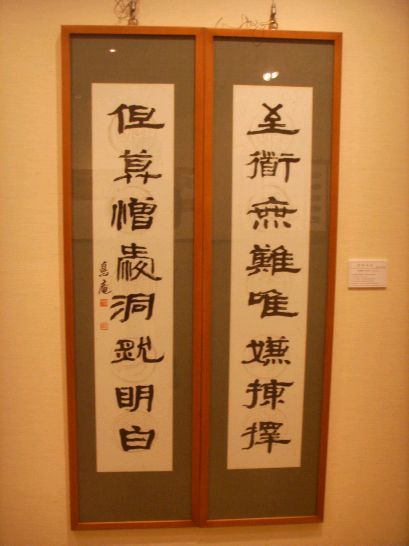 至衜無難唯嫌揀擇
但莫憎愛洞然明白
庵